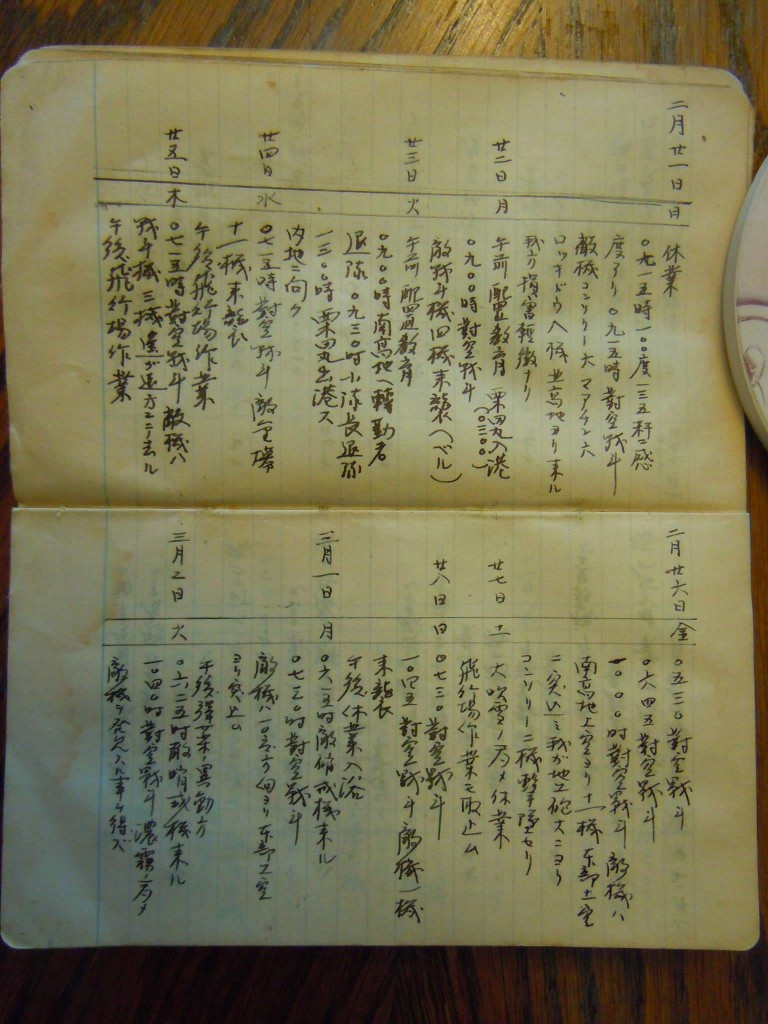 二月廿一日 日
休業
〇九一五時 一〇〇度 一三五粁ニ感
度アリ 〇九一五時 對空戰斗
敵機コンソリー六 マアチン六
ロッキード八機 並高地ヨリ来ル
我方損害軽微ナリ
廿二日 月
午前 配置教育 粟田丸入港
(〇三〇〇)
〇九〇〇時 對空戰斗
敵戰斗機四機来襲(ベル)
廿三日 火
午前 配置教育
〇九〇〇時南高地ヘ轉勤者
退隊 〇九三〇時小隊長退隊
一三〇〇時 粟田丸出港ス
内地ニ向ク
廿四日 水
〇七一五時 對空戰斗 敵爆
十一機来襲ス
午後飛行場作業
廿五日 木
〇七一五時對空戰斗 敵機ハ
戰斗機三機 遠方ニテ去ル
午後飛行場作業
二月廿六日 金
〇五三〇 對空戰斗
〇六四五 對空戰斗
一〇〇〇時對空戰斗 敵機ハ
南高地上空ヨリ十一機 東部上空
ニ突込ミ我ガ地上砲火ニヨリ
コンソリー二機撃墜セリ
廿七日 土
大吹雪ノ為メ休業
飛行場作業モ取止ム
廿八日 日
〇七三〇 對空戰斗
一〇四五 對空戰斗 敵機一機
来襲
午後 休業入浴
三月一日 月
〇六一五時敵哨戒機来ル
〇七三〇時對空戰斗
敵機ハ一〇〇方向ヨリ東部上空
ヨリ突込ム
午後 業
三月二日 火
〇六二五時敵哨戒機来ル
一〇四〇時對空戰斗 濃霧ノ為メ
敵機ヲ発見スル事ヲ得ズ